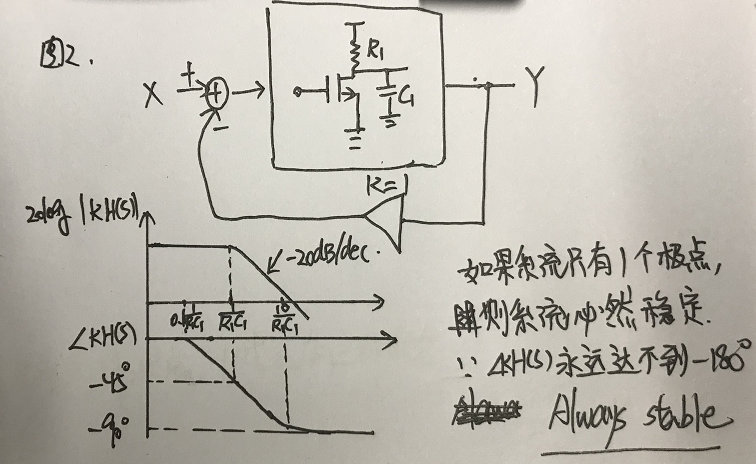 图2.
R₁
C₁
X
+
+
−
Y
K=1
20log |KH(s)|
-20dB/dec.
0.1 1/R₁C₁
1/R₁C₁
10/R₁C₁
∠KH(s)
-45°
-90°
如果系统只有1个极点,
则系统必然稳定.
∵ ∠KH(s)永远达不到-180°
Always stable